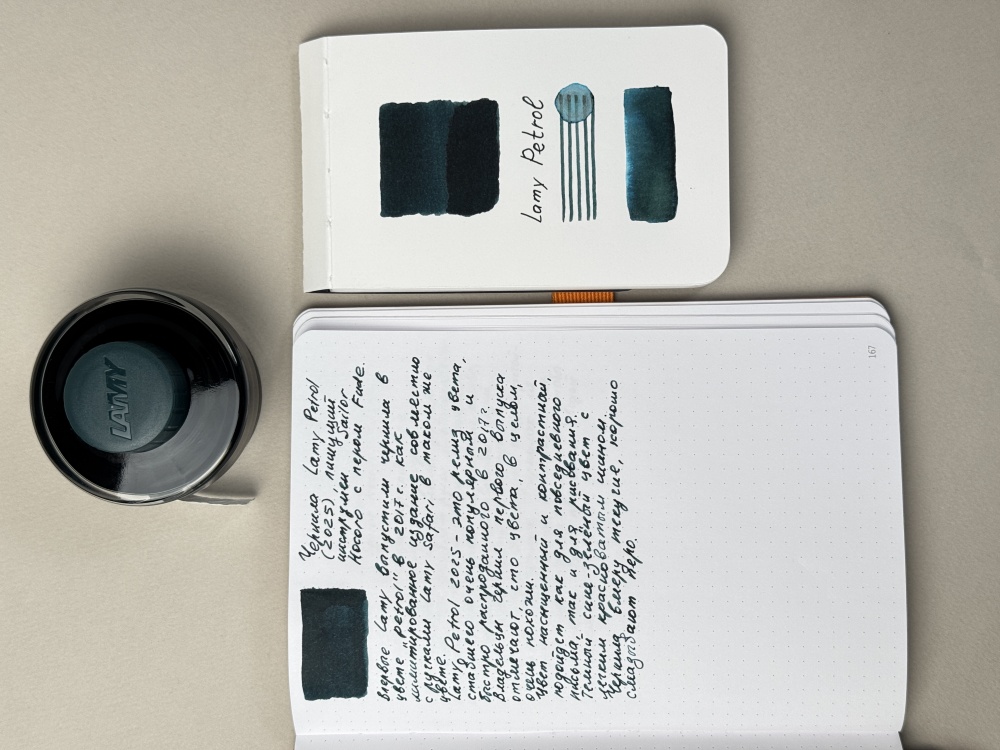 LAMY
Lamy Petrol
Чернила Lamy Petrol
(2025), пишущий
инструмен Sailor
Hocoro с пером Fude.
Впервые Lamy выпустили чернила в
цвете "petrol" в 2017 г. как
лимитированное издание совместно
с ручками Lamy Safari в таком же
цвете.
Lamy Petrol 2025 - это ремид цвета,
ставшего очень популярным и
быстро распроданного в 2017 г.
Владельцы чернил первого выпуска
отмечают, что цвета, в целом,
очень похожи.
Цвет насыщенный и контрастный,
подойдет как для повседневного
письма, так и для рисования.
Темный сине-зелёный цвет с
легким красноватым шином.
Чернила вмеру текучие, хорошо
смазывают перо.
167